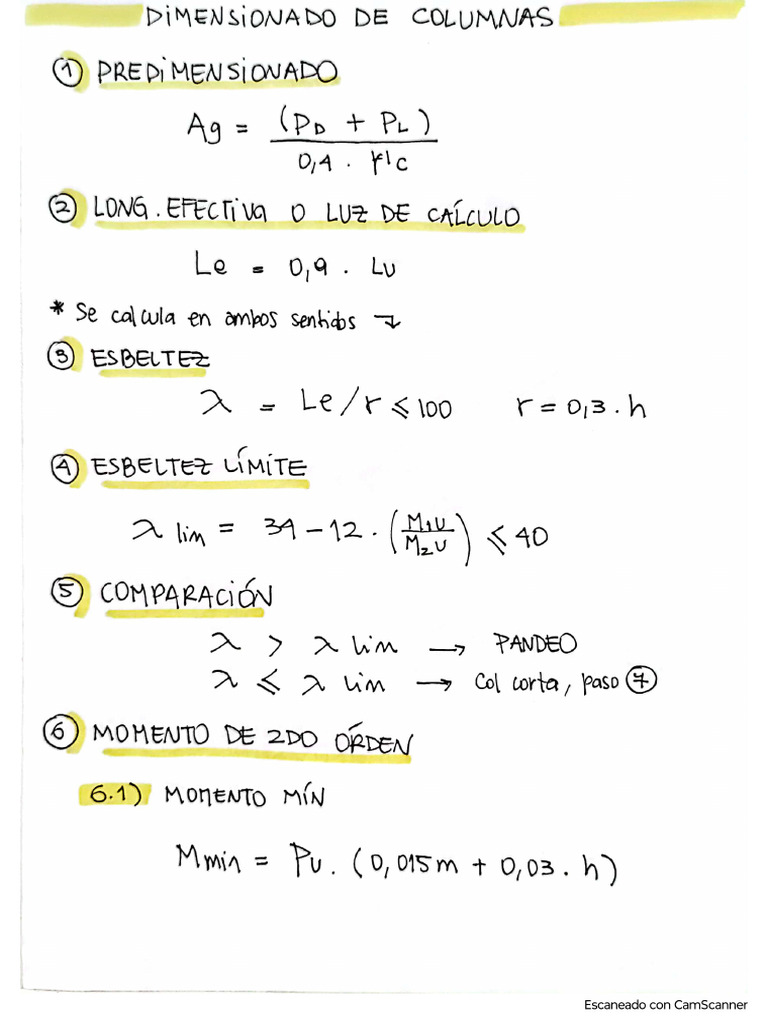 DIMENSIONADO DE COLUMNAS
① PREDIMENSIONADO
Ag = (PD + PL) / 0,4 . f'c
② LONG. EFECTIVA O LUZ DE CÁLCULO
Le = 0,9 . Lu
* Se calcula en ambos sentidos ↴
③ ESBELTEZ
λ = Le/r ≤ 100 r = 0,3 . h
④ ESBELTEZ LÍMITE
λ lim = 34 - 12 . (M1u / M2u) ≤ 40
⑤ COMPARACIÓN
λ > λ lim → PANDEO
λ ≤ λ lim → Col corta, paso ⑦
⑥ MOMENTO DE 2DO ÓRDEN
6.1) MOMENTO MÍN
Mmin = Pu . (0,015m + 0,03 . h)
Escaneado con CamScanner